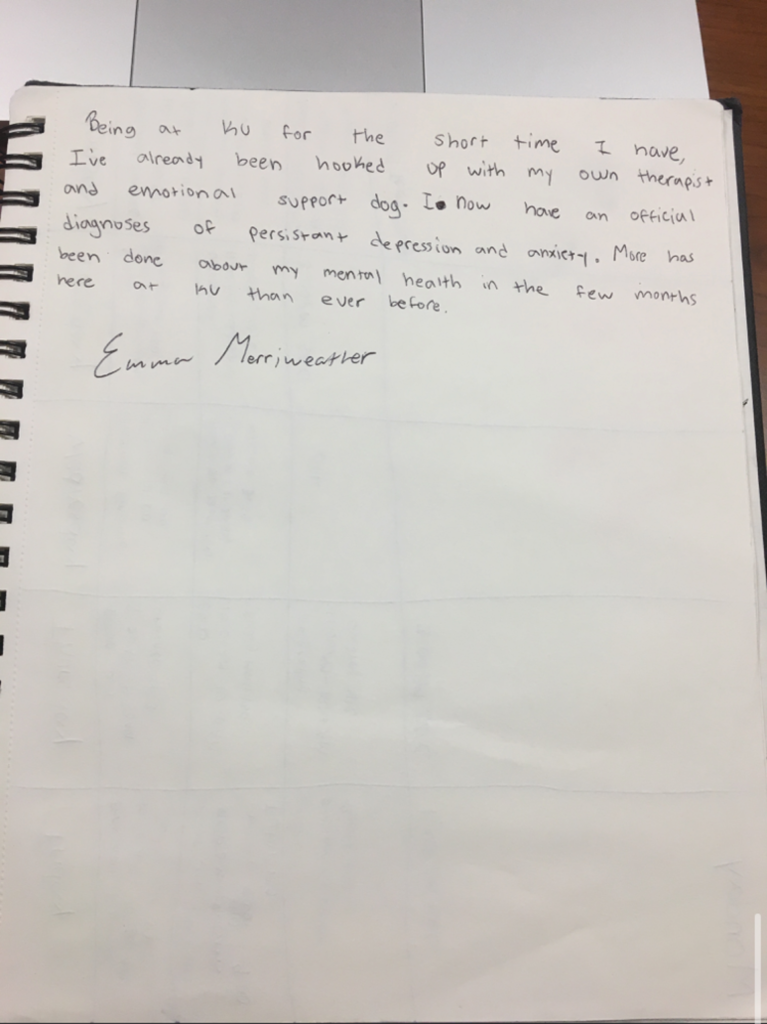 Being at KU for the short time I have,
I've already been hooked up with my own therapist
and emotional support dog. I now have an official
diagnoses of persistant depression and anxiety. More has
been done about my mental health in the few months
here at KU than ever before.
Emma Merriweather